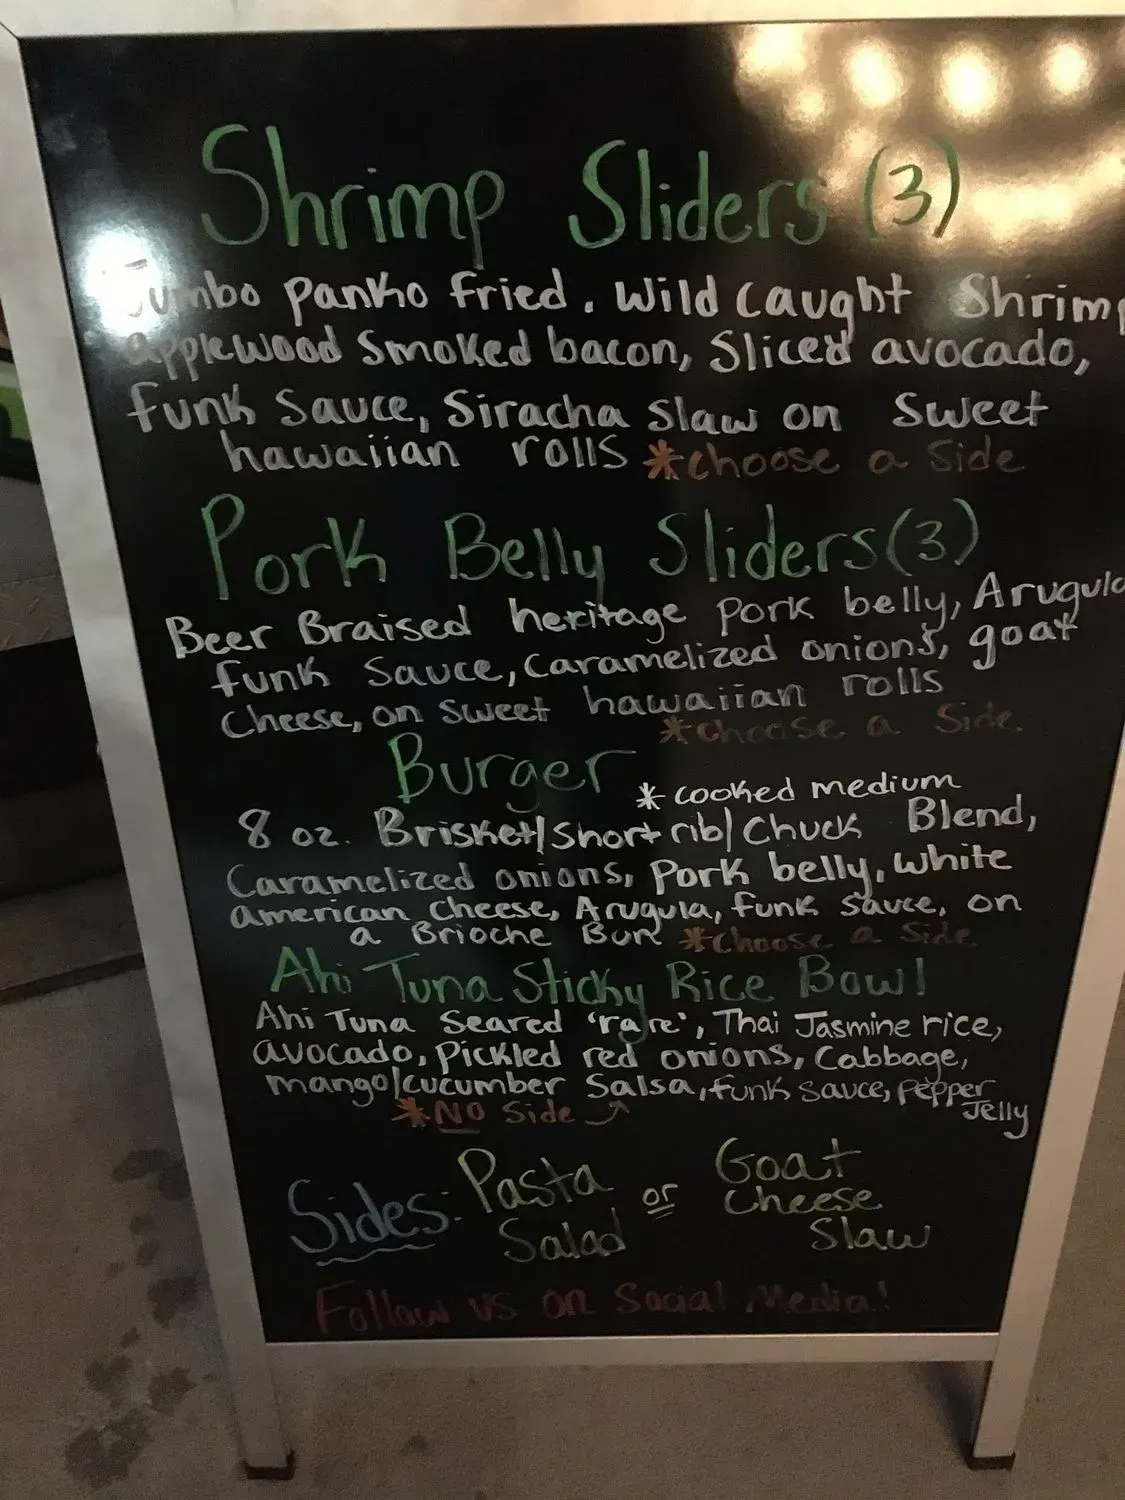 Shrimp Sliders (3)
Jumbo panko fried, wild caught Shrimp
applewood Smoked bacon, Sliced avocado,
funk Sauce, Siracha Slaw on Sweet
hawaiian rolls *choose a Side
Pork Belly Sliders (3)
Beer Braised heritage pork belly, Arugula
funk Sauce, Caramelized onions, goat
Cheese, on sweet hawaiian rolls
*choose a Side
Burger
*cooked medium
8 oz. Brisket/Short rib/Chuck Blend,
Caramelized onions, Pork belly, white
american cheese, Arugula, funk sauce, on
a Brioche Bun *Choose a Side
Ahi Tuna Sticky Rice Bowl
Ahi Tuna Seared 'rare', Thai Jasmine rice,
avocado, Pickled red onions, Cabbage,
mango/cucumber Salsa, funk sauce, pepper
Jelly
*NO Side
Sides: Pasta Salad or Goat Cheese Slaw
Follow us on Social Media!